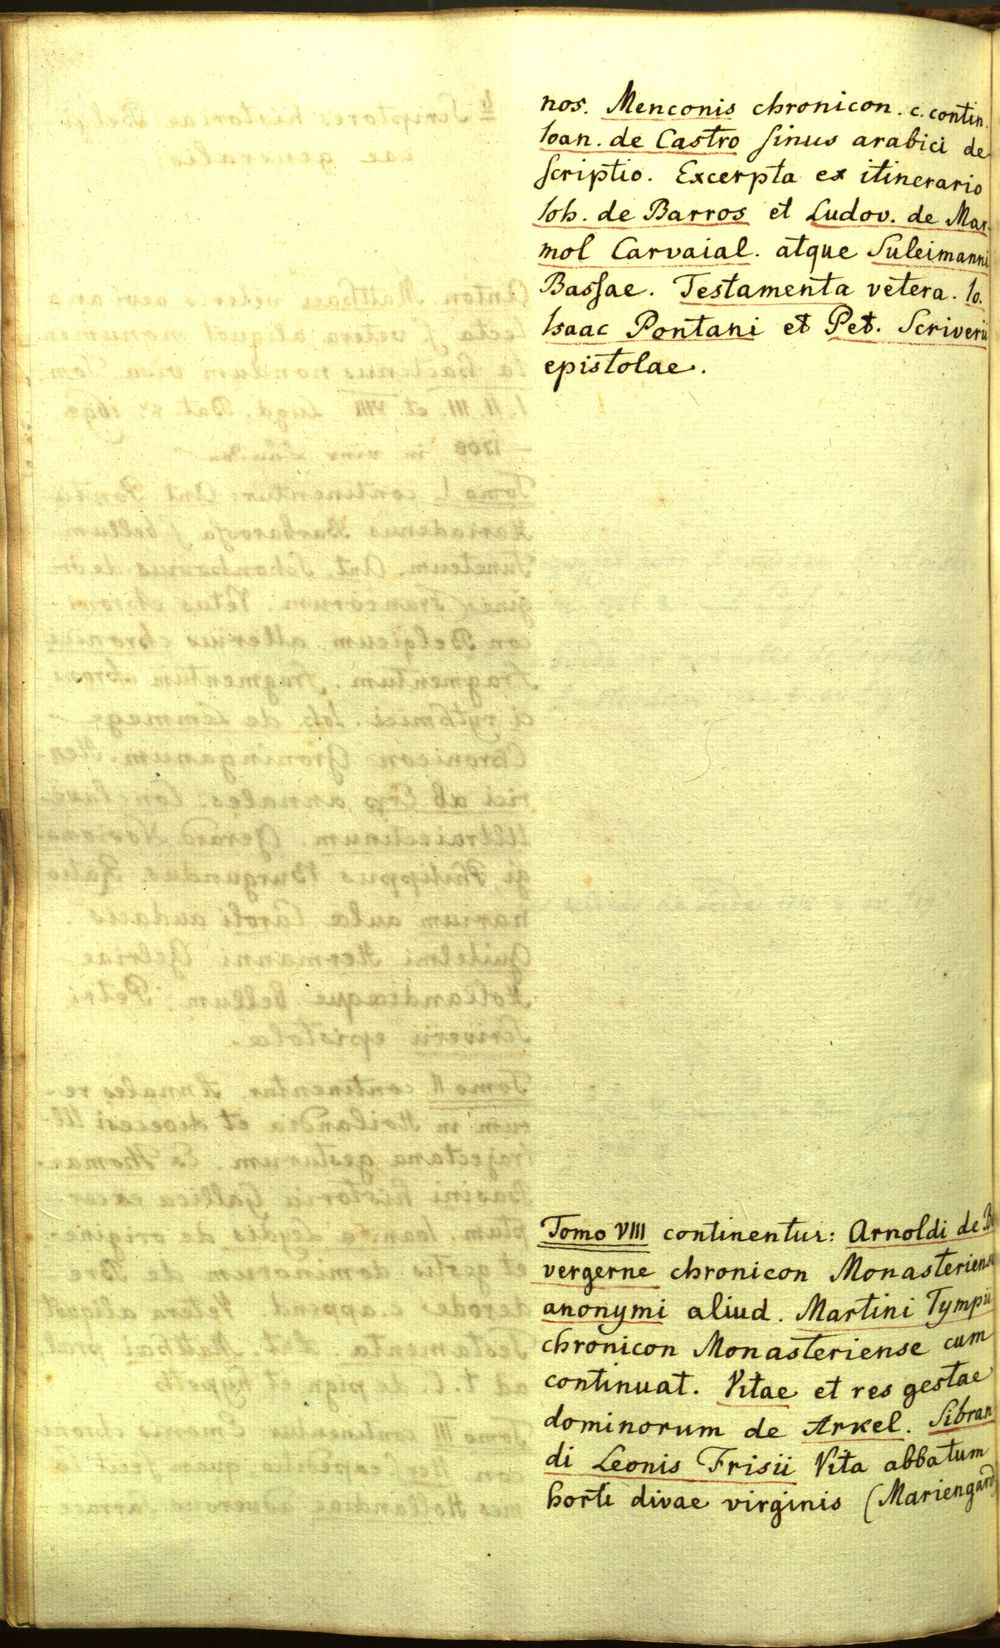 nos. Menconis chronicon. c. contin.
Ioan. de Castro sinus arabici de
scriptio. Excerpta ex itinerario
Ioh. de Barros et Ludov. de Mar
mol Carvaial. atque Suleimanni
Bassae. Testamenta vetera. Io.
Isaac Pontani et Pet. Scriverii
epistolae.
Tomo VIII continentur: Arnoldi de B
vergerne chronicon Monasteriense
anonymi aliud. Martini Tympii
chronicon Monasteriense cum
continuat. Vitae et res gestae
dominorum de Arkel. Sibran
di Leonis Frisii Vita abbatum
horti divae virginis (Mariengard